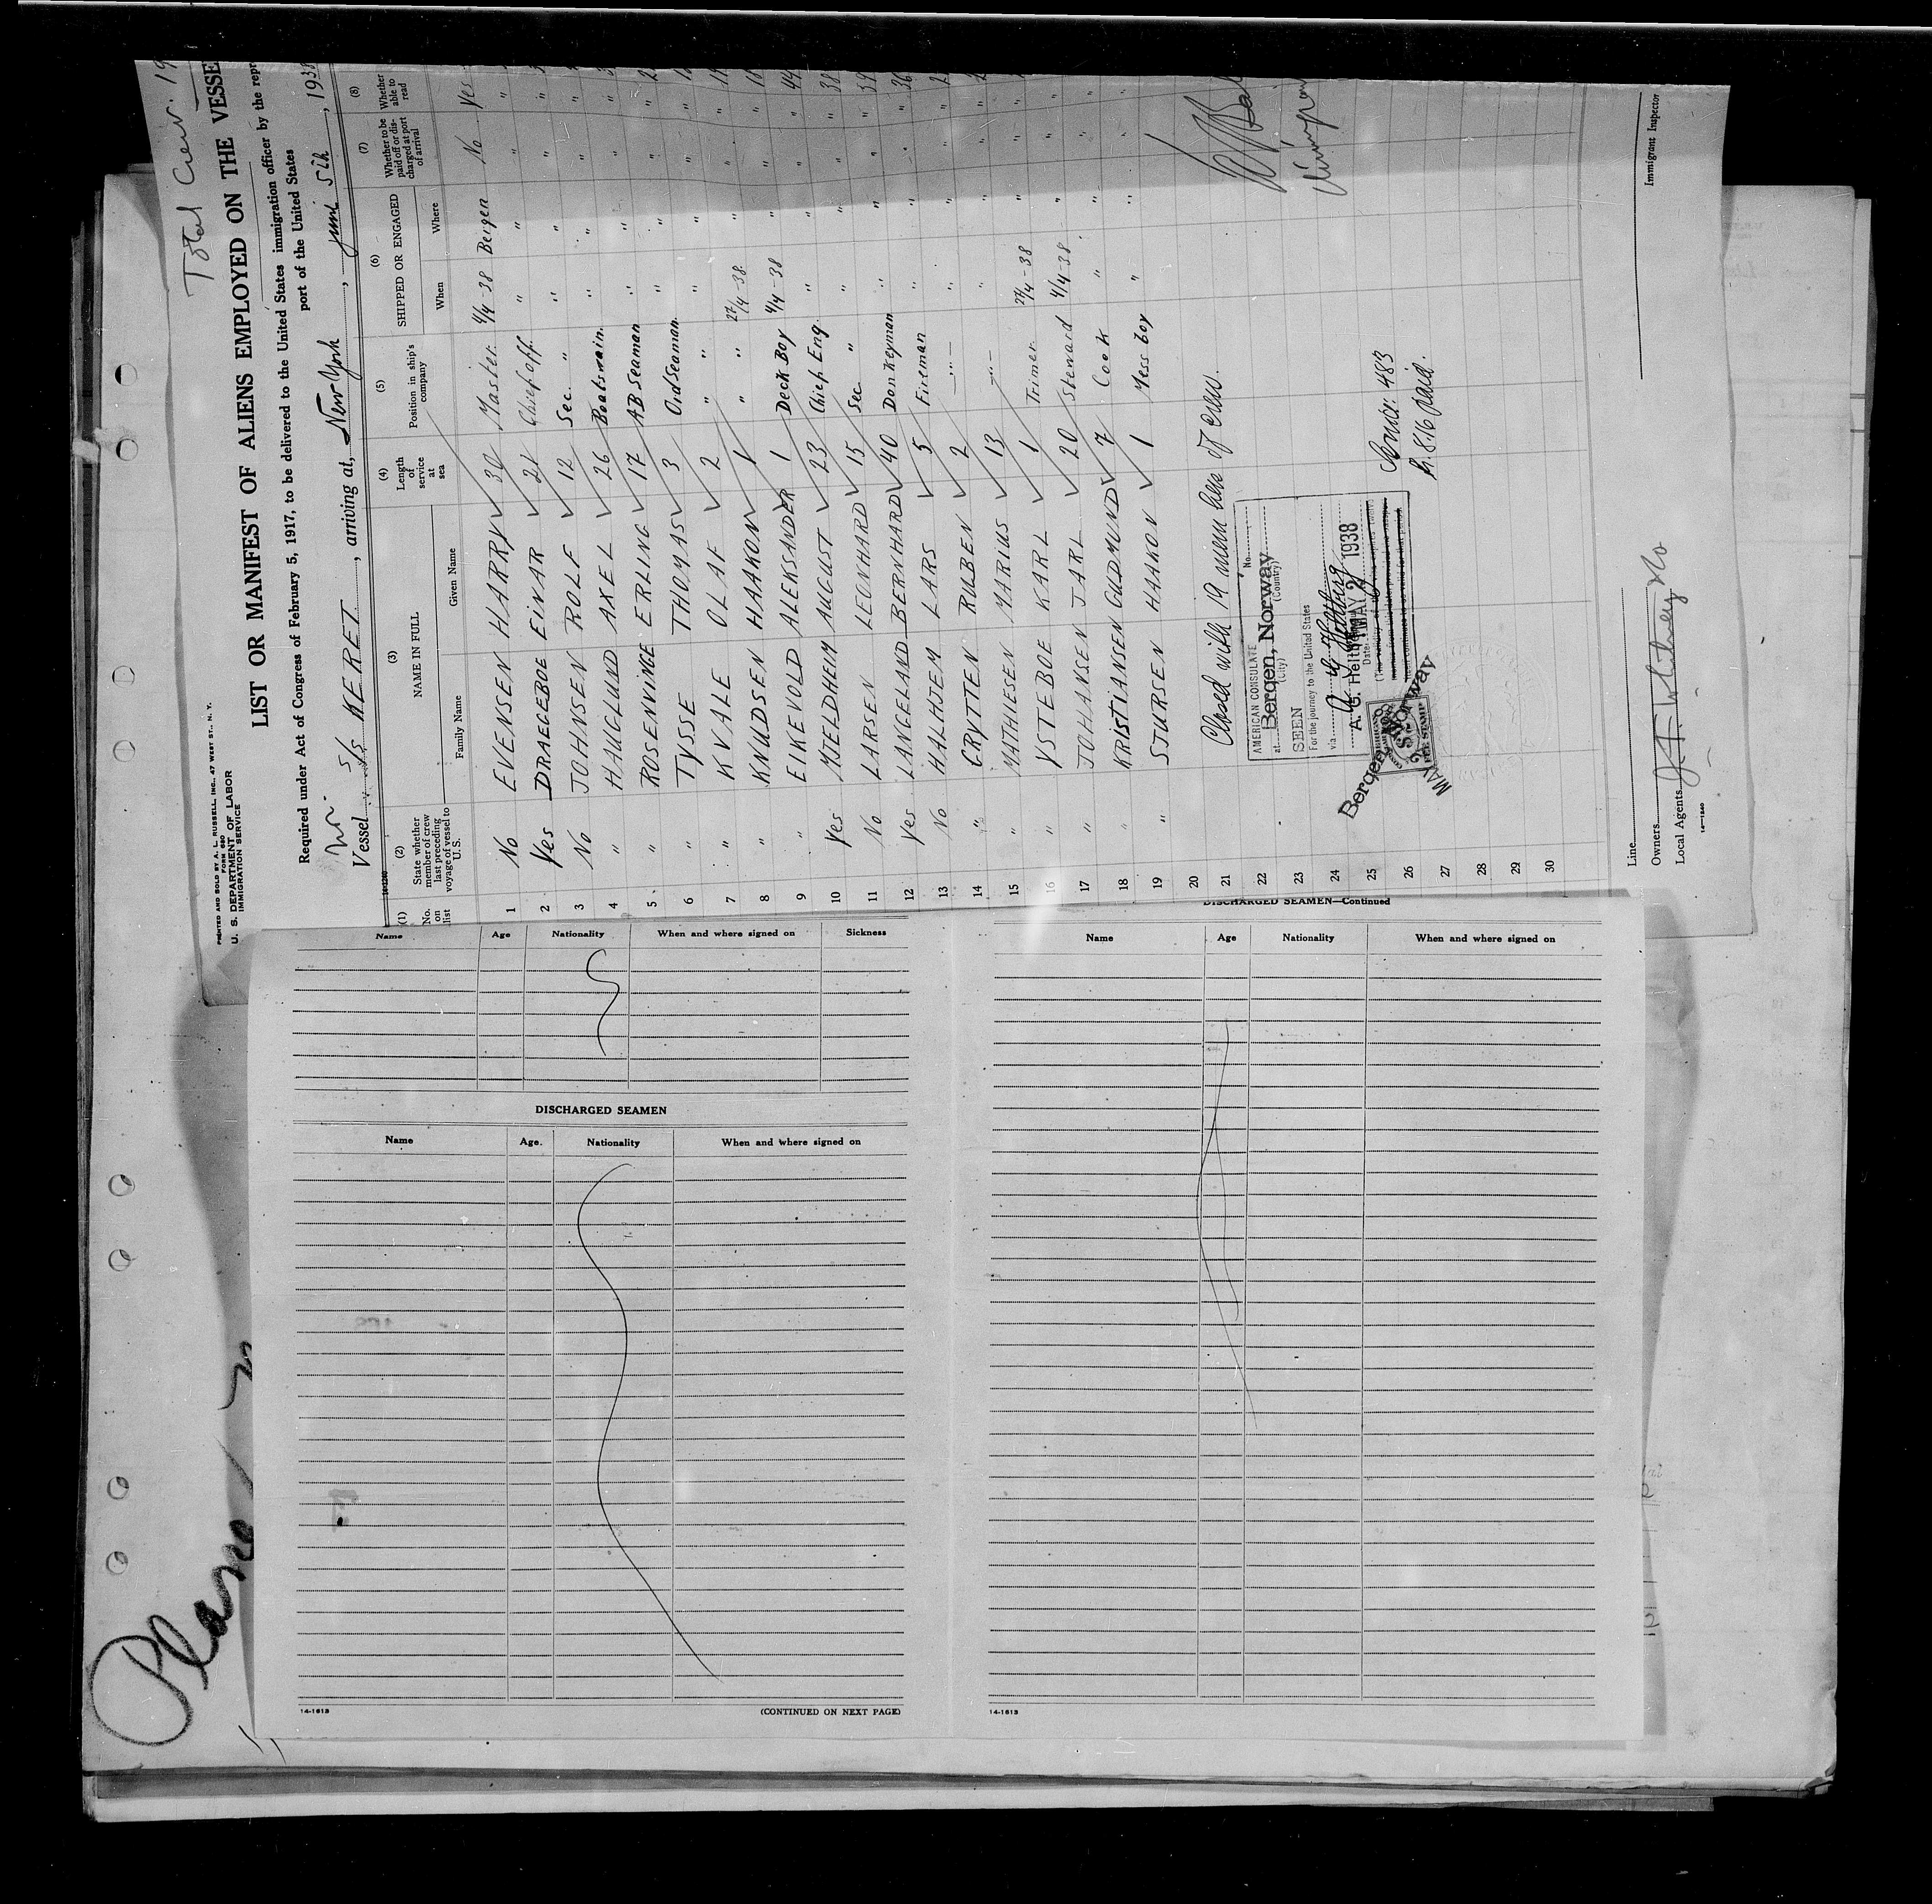 Total Crew. 19
PRINTED AND SOLD BY A. L. RUSSELL, INC., 47 WEST ST., N. Y.
FORM 680
U. S. DEPARTMENT OF LABOR
IMMIGRATION SERVICE
LIST OR MANIFEST OF ALIENS EMPLOYED ON THE VESSE
Required under Act of Congress of February 5, 1917, to be delivered to the United States immigration officer by the repr
port of the United States
Vessel S/S KERET, arriving at, New York, 5th, 1938
(1) (2) (3) (4) (5) (6) (7) (8)
No. on list State whether member of crew last preceding voyage of vessel to U.S. NAME IN FULL Length of service at sea Position in ship's company SHIPPED OR ENGAGED Whether to be paid off or discharged at port of arrival Whether able to read
Family Name Given Name When Where
1 No EVENSEN HARRY 30 Master 4/4-38 Bergen No Yes
2 Yes DRAEGEBOE EINAR 21 Chief off. " " " "
3 No JOHNSEN ROLF 12 Sec. " " " " "
4 " HAUGLUND AXEL 26 Boatswain " " " "
5 " ROSENVINGE ERLING 17 AB Seaman " " " "
6 " TYSSE THOMAS 3 Ord Seaman " " " "
7 " KVALE OLAF 2 " " " " "
8 " KNUDSEN HAAKON 1 " 27/4-38 " " "
9 " EIKEVOLD ALEKSANDER 1 Deck Boy 4/4-38 " " " 44
10 Yes MJELDHEIM AUGUST 23 Chief Eng. " " " " 38
11 No LARSEN LEONHARD 15 Sec " " " " " 39
12 Yes LANGELAND BERNHARD 40 Donkeyman " " " " 36
13 No HALHJEM LARS 5 Fireman " " " "
14 " GRYTTEN RUBEN 2 " " " " "
15 " MATHIESEN MARIUS 13 " " " "
16 " YSTEBOE KARL 1 Trimer 27/4-38 " " "
17 " JOHANSEN JARL 20 Steward 4/4-38 " " "
18 " KRISTIANSEN GUDMUND 7 Cook " " " "
19 " STURSEN HAAKON 1 Mess boy " " " "
20
21 Closed with 19 members of crew.
22
23
24
25
26
27
28
29
30
AMERICAN CONSULATE No.
at Bergen, Norway
(City) (Country)
SEEN
For the journey to the United States
via
A. G. Heltberg
Date: MAY 2 1938
Service 483
paid.
Bergen, Norway
MAY 2
Line
Owners
Local Agents J. F. Whitney & Co
14—1240
Immigrant Inspector
Name Age Nationality When and where signed on Sickness
DISCHARGED SEAMEN
Name Age. Nationality When and where signed on
14-1613 (CONTINUED ON NEXT PAGE)
DISCHARGED SEAMEN—Continued
Name Age Nationality When and where signed on
14-1613